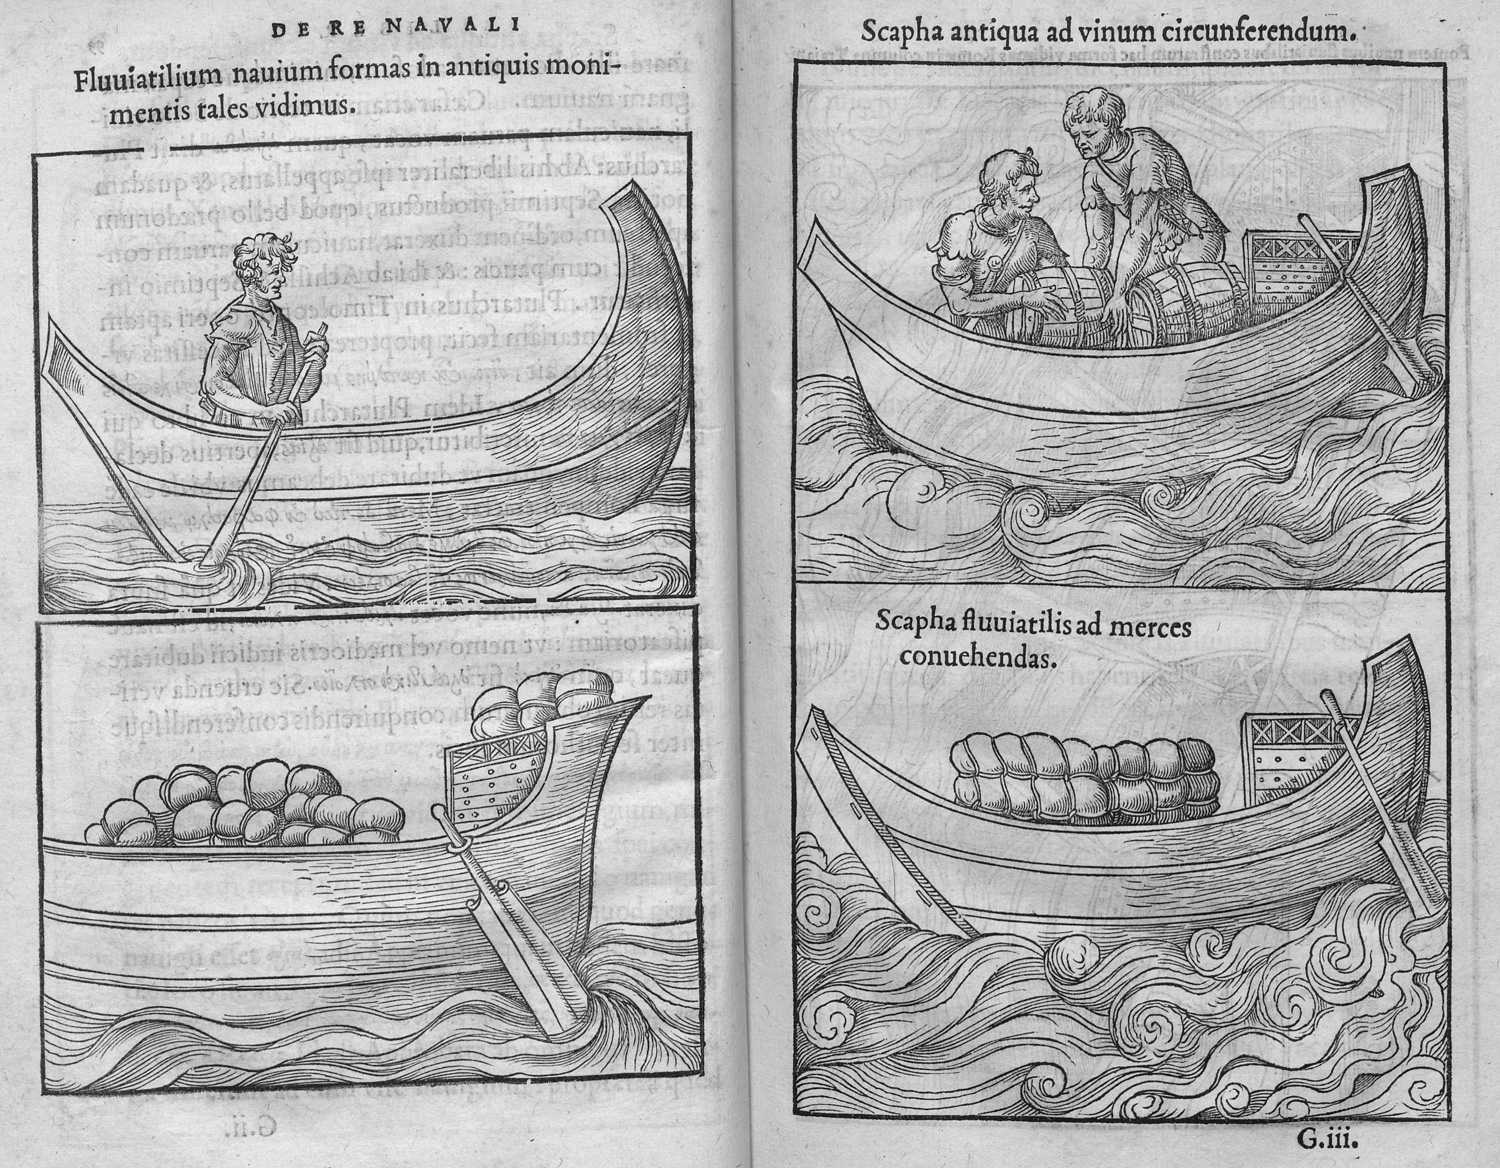 DE RE NAVALI
Fluuiatilium nauium formas in antiquis moni-
mentis tales vidimus.
Scapha antiqua ad vinum circunferendum.
Scapha fluuiatilis ad merces
conuehendas.
G.iii.